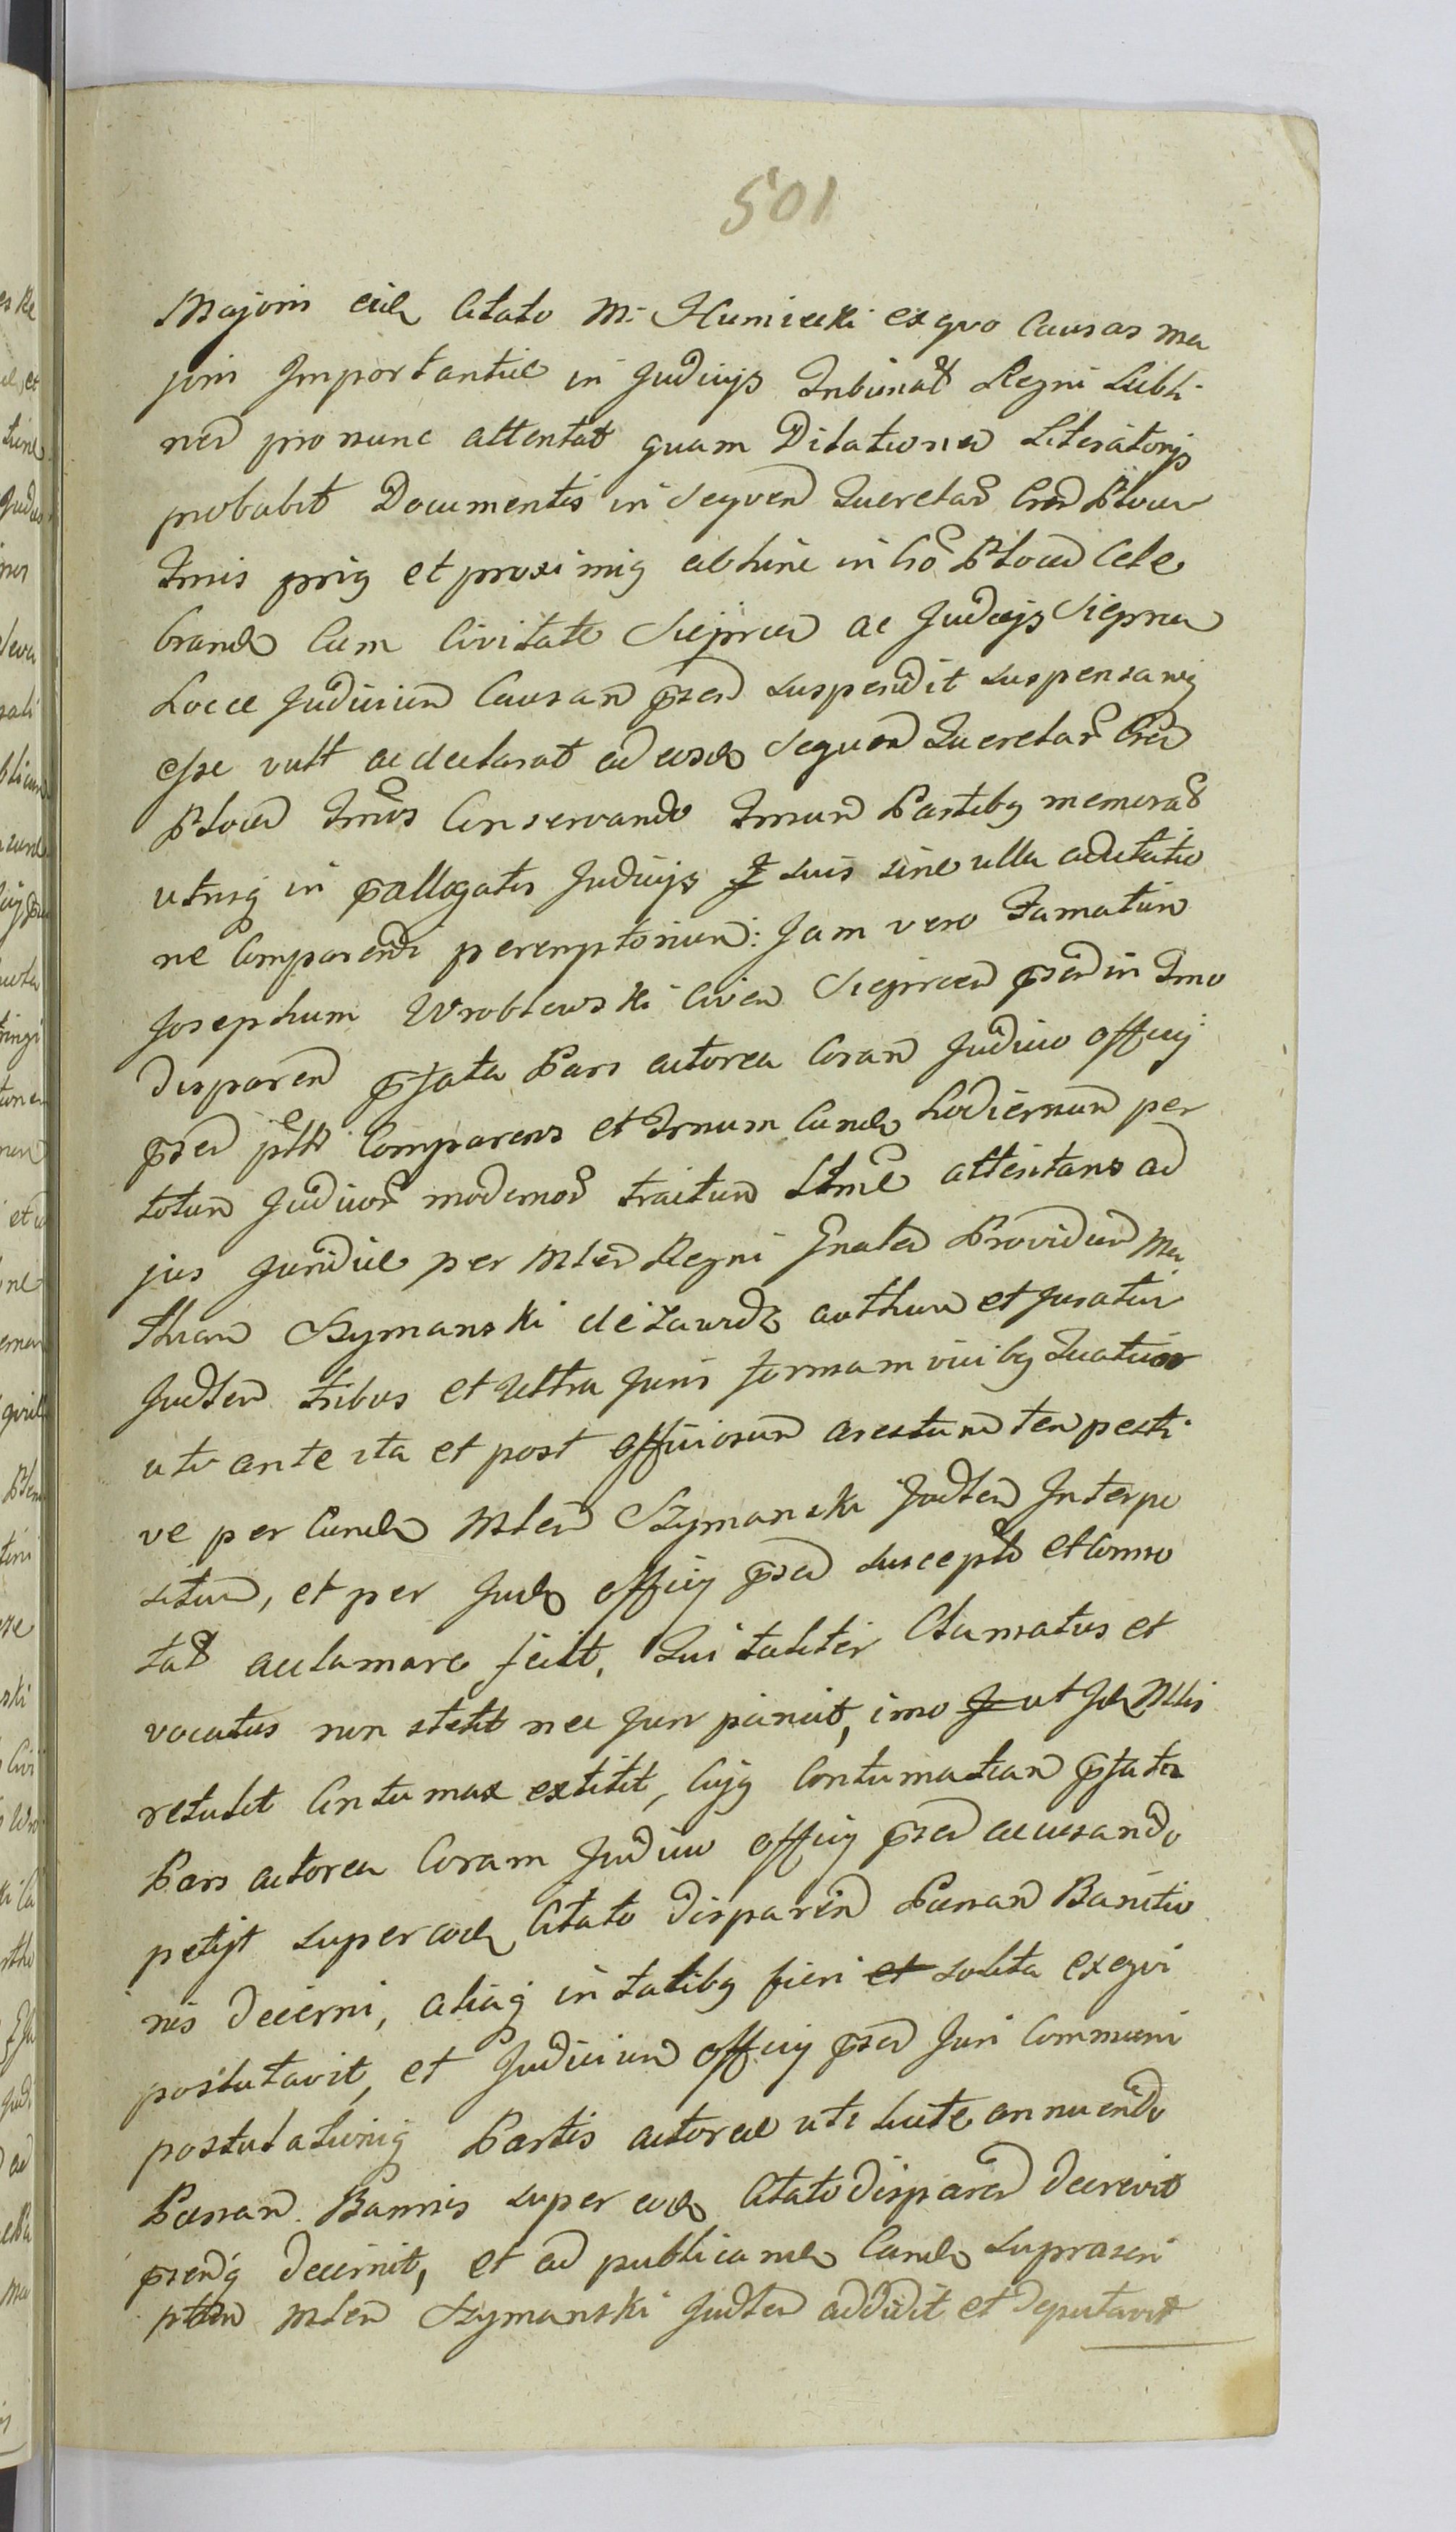 501
Majoris eid Citato M. Humiecki ex quo Causas ma
joris Importantiae in Judicijs Tribunal Regni Lubli
nen pro nunc attentat quam Dilationem Literatorijs
probabit Documentis in Sequen Querelar Cren Plocen
Tmis prig et proximig abhinc in Cro Plocen Cele
brand Cum Civitate Sieprcen ac Judicijs Sieprcen
Loca Judicium Causam psen suspendit suspensamq
esse vult ac declarat ad eosd Sequen Querelar Cren
Plocen Tmos Conservando Tmum Partibq memorat
utrisq in pallegatis Judicijs suis sine ulla adcitatio
ne Comparendi peremptorium: Jam vero Famatum
Josephum Wroblewski Civem Sieprcen psen in Tmo
disparen pfata Pars actorea Coram Judicio officij
psen pltr Comparens et Trnum Eund hodiernum per
totum Judicior modernor tractum Ltme attentans ad
jus Juridice per Mlem Regni Gnalem Providum Ma
thiam Szymanski de Zawidz authum et Juratum
Judlem tribus et Ultra Juris formam vicibq Quatuor
uti ante ita et post officiosum arestum tempesti
ve per Eund Mlem Szymanski Judlem Interpo
situm, et per Jud officij psen suscepto et Conno
tat acclamare fecit, Qui taliter Clamatus et
vocatus non stetit nec Juri paruit, imo ut Id Mlis
retulit Contumax extitit, Cujq Contumatiam pfata
Pars actorea Coram Judicio officij psen accusando
petijt super eod Citato disparen Paenam Banitio
nis decerni, aliaq in talibq fieri et solita exequi
postulavit, et Judicium officij psen Juri Communi
postulationiq Partis actoreae uti licite annuendo
Paenam Bannis super eod Citato disparen decrevit
psenq decernit, et ad publicand Eand suprascri
ptum Mlem Szymanski Judlem addidit et deputavit